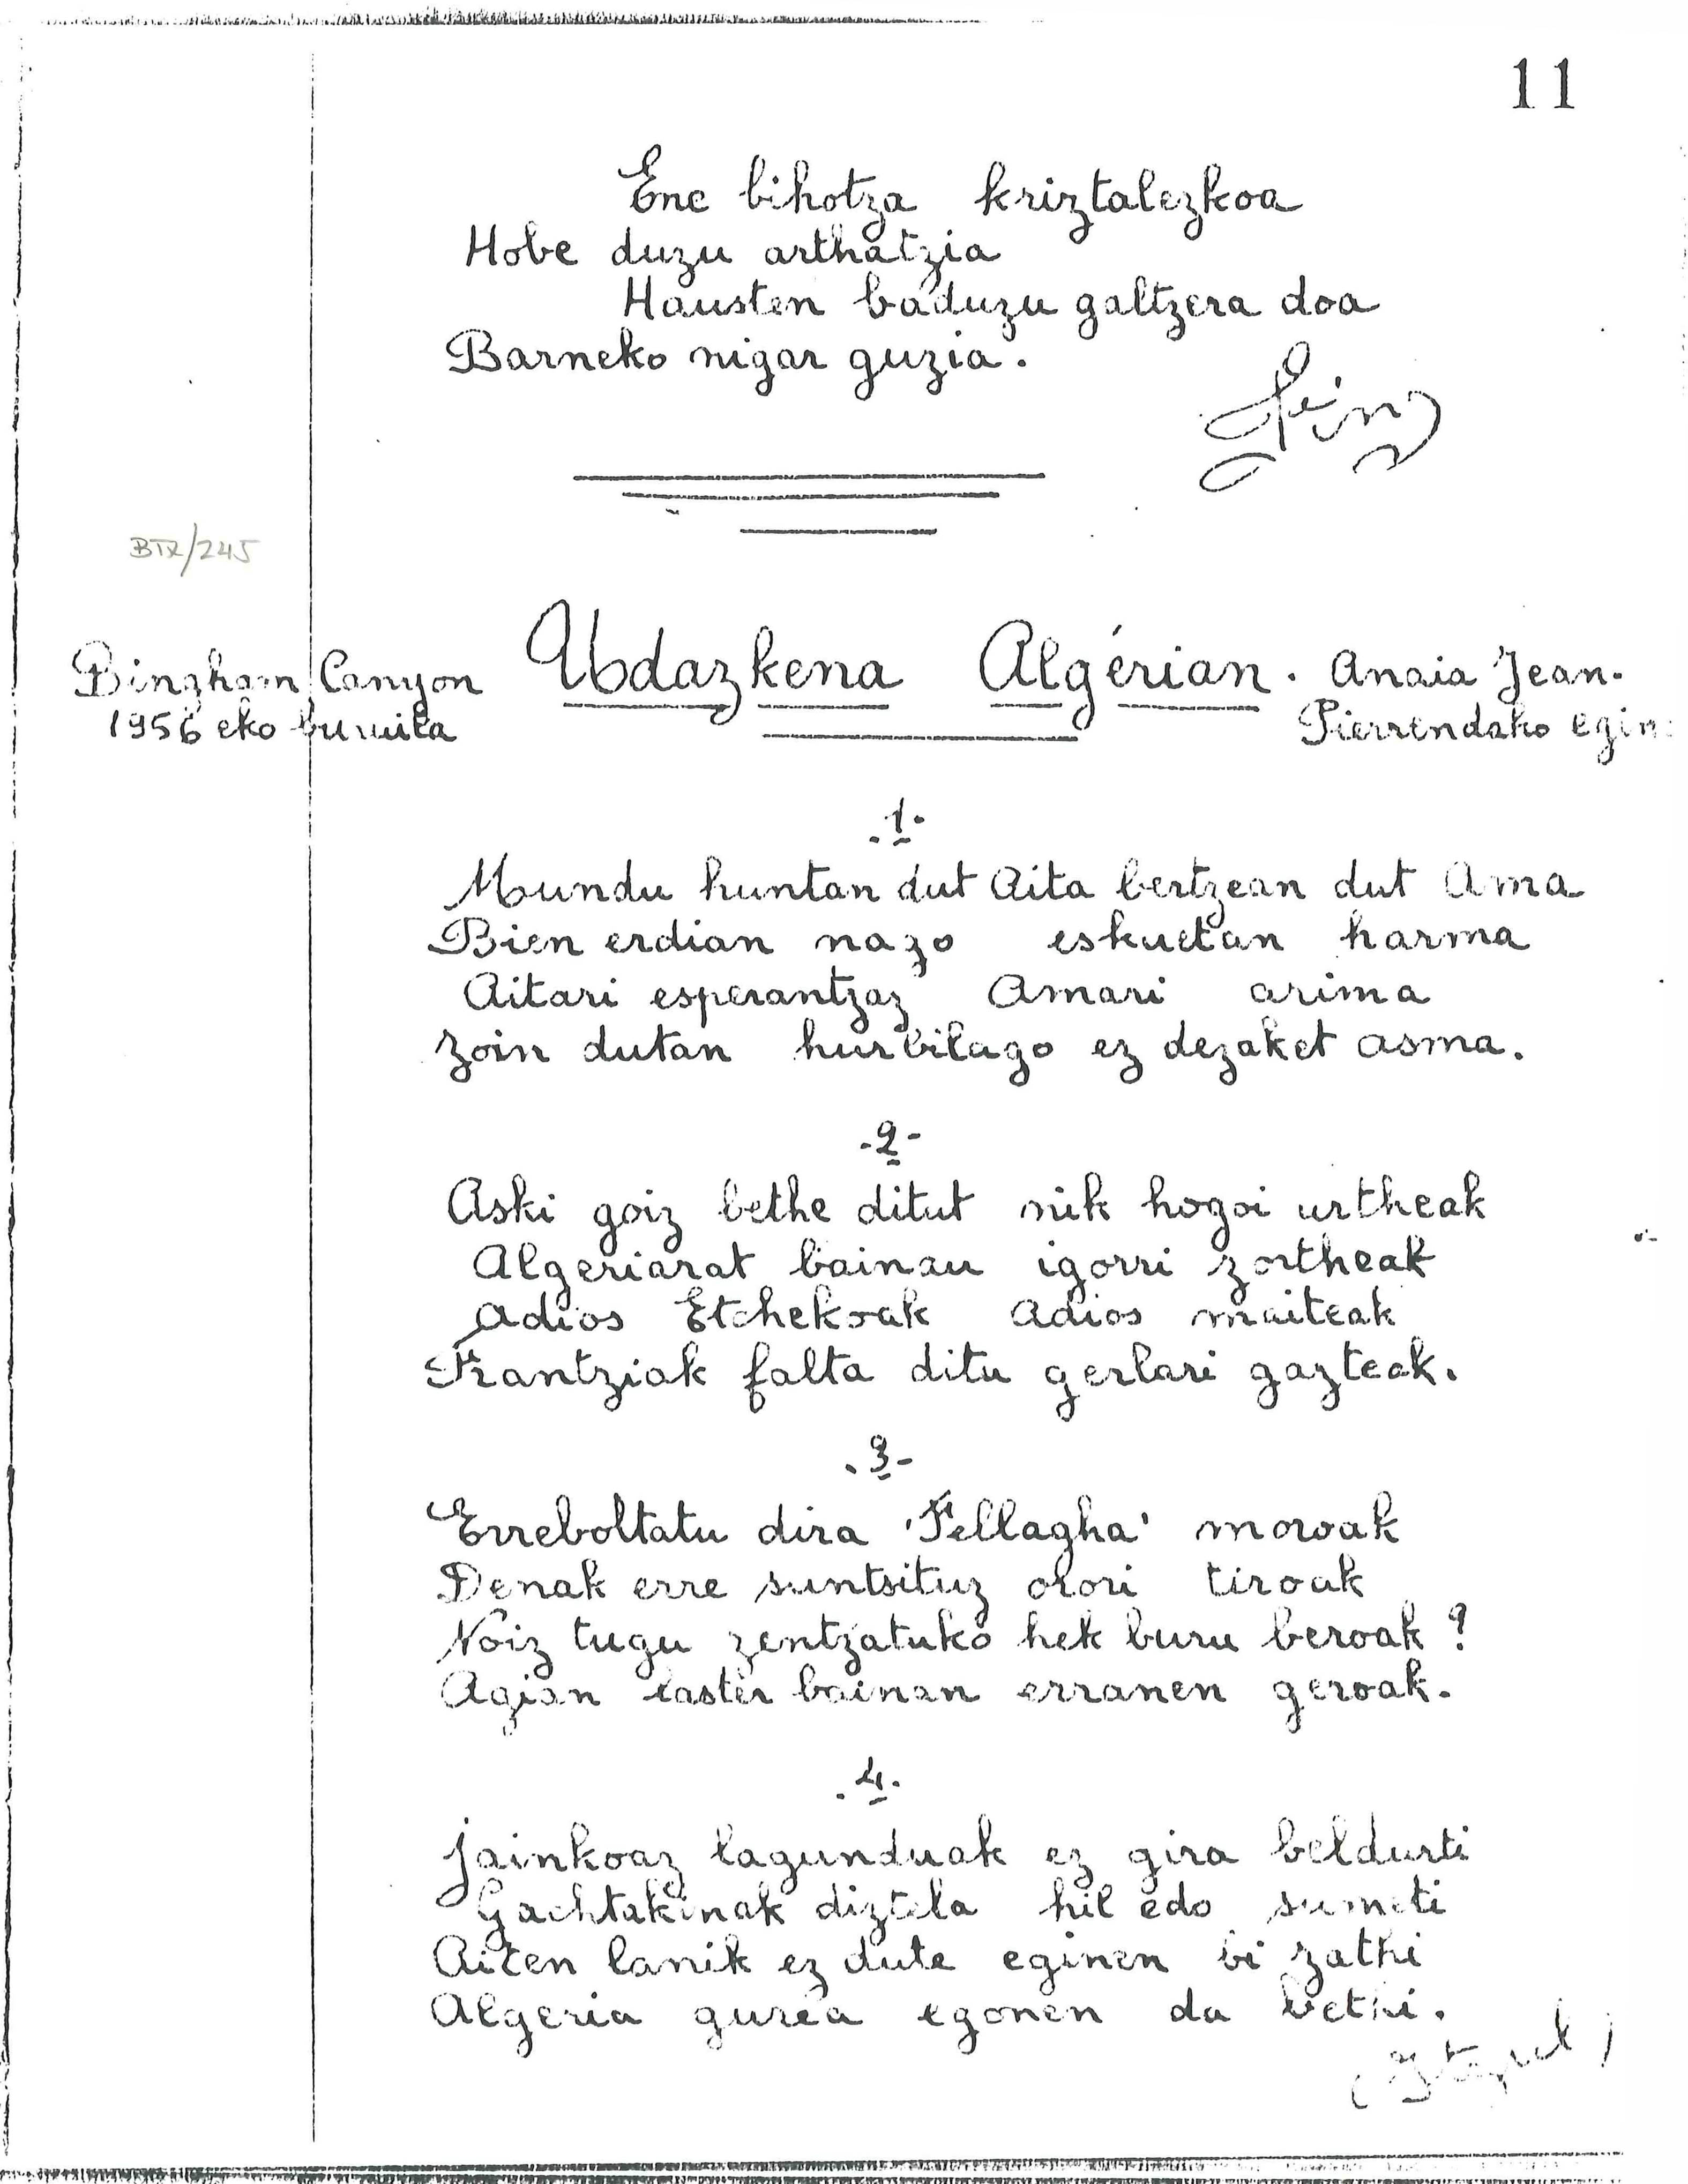 11
Ene bihotza kriztalezkoa
Hobe duzu arthatzia
Hausten baduzu galtzera doa
Barneko nigar guzia.
Fin
BTX/245
Bingham Canyon
1956 eko buruila
Udazkena Algérian. Anaia Jean-
Pierrendako egin
.1.
Mundu huntan dut Aita bertzean dut Ama
Bien erdian nago eskuetan harma
Aitari esperantzaz Amari arima
Zoin dutan hurbilago ez dezaket asma.
-2-
Aski goiz bethe ditut nik hogoi urtheak
Algeriarat bainau igorri zortheak
Adios Etchekoak Adios maiteak
Frantziak falta ditu gerlari gazteak.
.3-
Erreboltatu dira 'Fellagha' moroak
Denak erre suntsituz orori tiroak
Noiz tugu zentzatuko hek buru beroak ?
Agian laster bainan erranen geroak.
.4.
Jainkoaz lagunduak ez gira beldurti
Gachtakinak diztela hil edo sumeti
Aiten lanik ez dute eginen bi zathi
Algeria gurea egonen da bethi.
(Itzul)